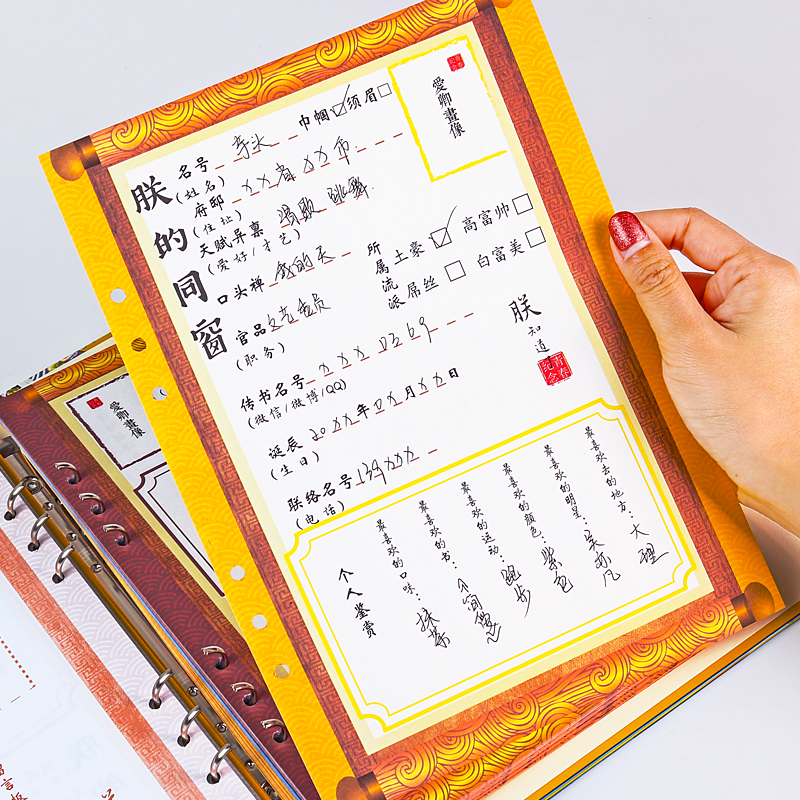 朕的同窗
名号 芋头 巾帼☑须眉□
(姓名)
府邸 XX省XX市
(住址)
天赋异禀 唱歌 跳舞
(爱好/才艺)
口头禅 我的天
官品 文艺委员
(职务)
传书名号 XXX 0369
(微信/微博/QQ)
诞辰 20XX年0X月XX日
(生日)
联络名号 139XXXX
(电话)
所属流派
土豪☑ 高富帅□
屌丝□ 白富美□
愛卿畫像
青春纪念
朕知道
青春纪念
最喜欢去的地方：大理
最喜欢的明星：吴亦凡
最喜欢的颜色：紫色
最喜欢的运动：跑步
最喜欢的书：
最喜欢的口味：抹茶
个人鉴赏
愛卿畫像